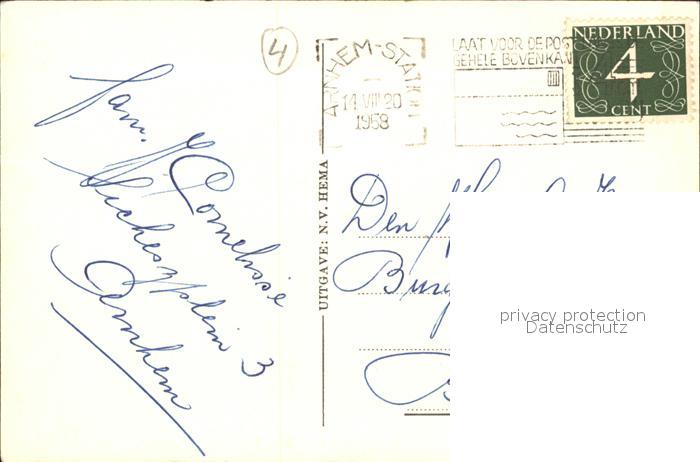 4
ARNHEM-STATION
14 VIII 20
1958
LAAT VOOR DE POST
GEHELE BOVENKAN
NEDERLAND
4
CENT
fam. Cornelisse
plein 3
Arnhem
UITGAVE: N.V. HEMA
Den
Burg
privacy protection
Datenschutz